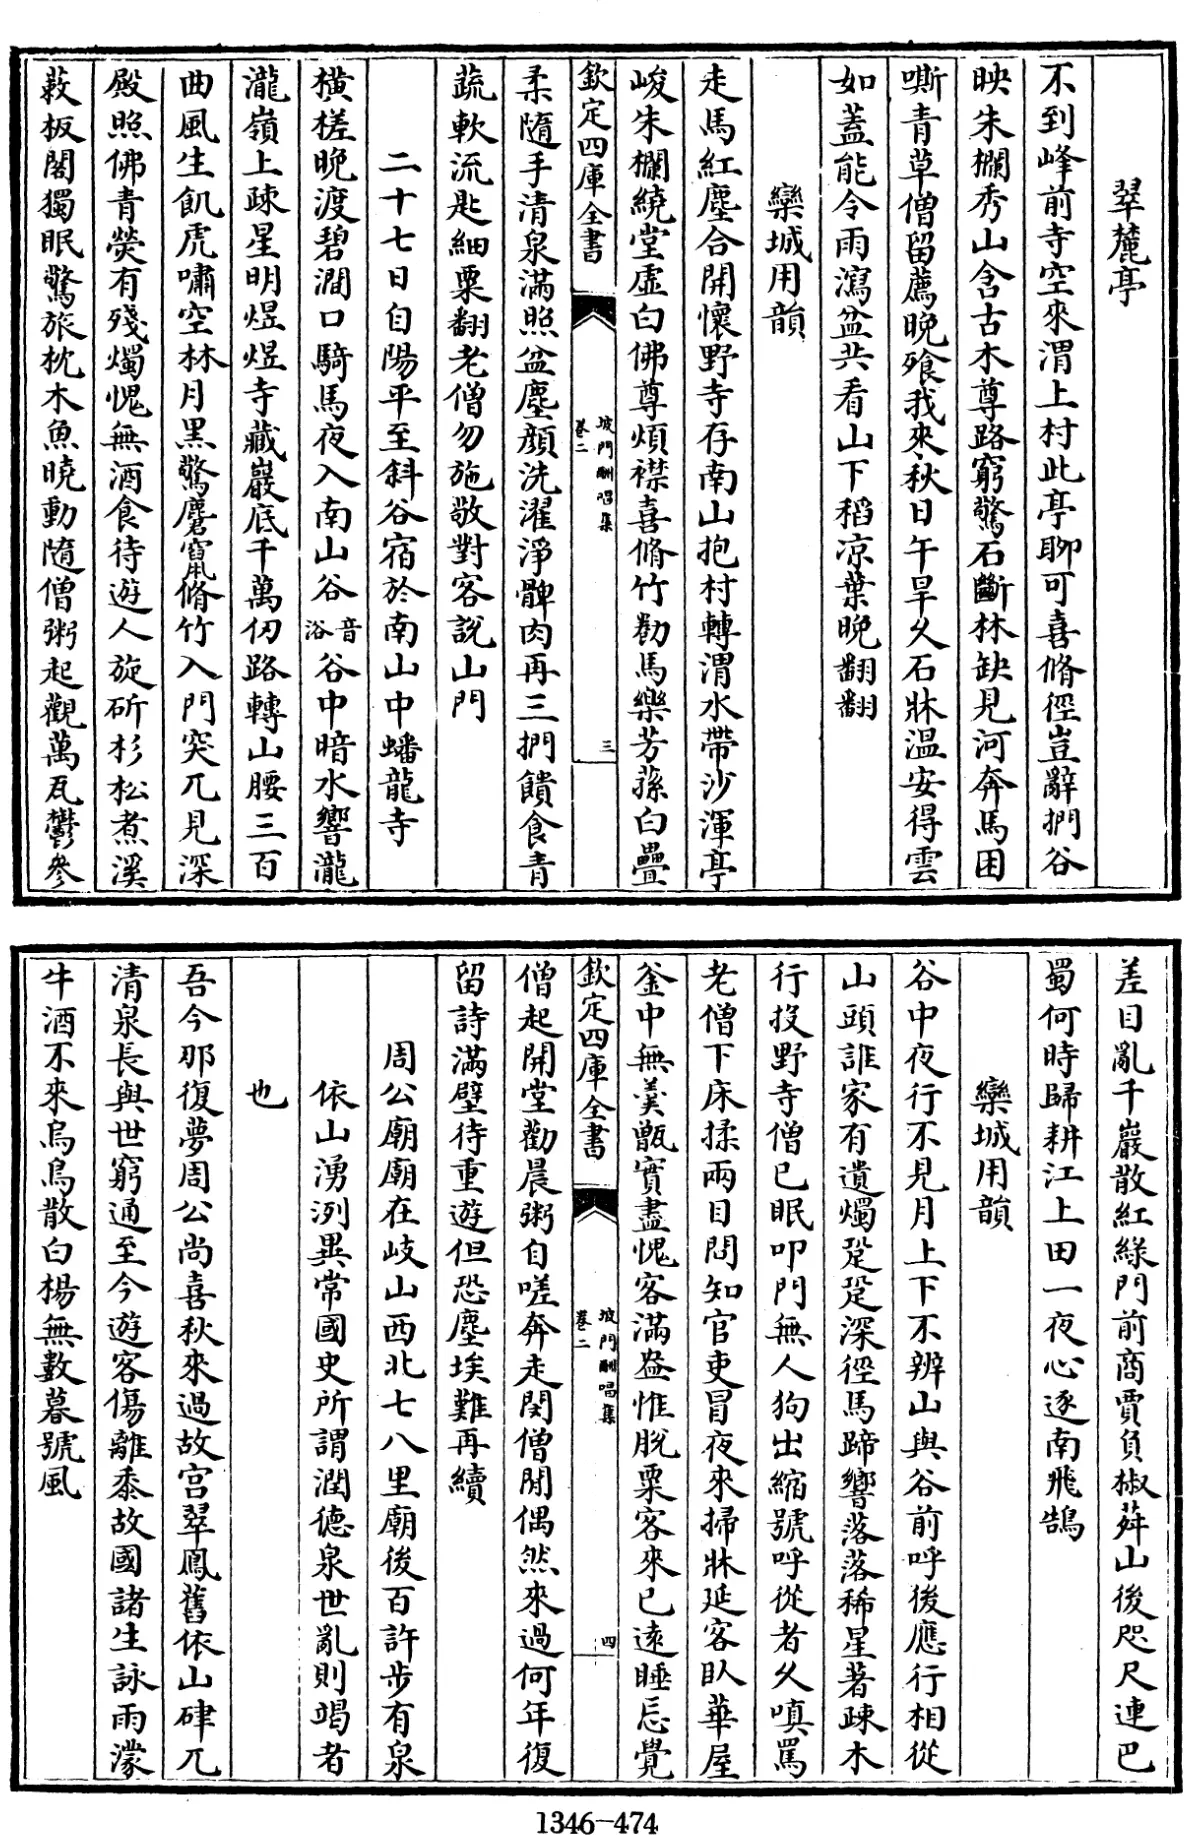 翠麓亭
不到峰前寺空來渭上村此亭聊可喜脩徑豈辭捫谷
映朱欄秀山含古木尊路窮驚石斷林缺見河奔馬困
嘶青草僧留薦晚飱我來秋日午旱久石牀温安得雲
如蓋能令雨瀉盆共看山下稻凉葉晚翻翻
欒城用韻
走馬紅塵合開懷野寺存南山抱村轉渭水帶沙渾亭
峻朱欄繞堂虛白佛尊煩襟喜脩竹勸馬樂芳蓀白疊
欽定四庫全書
坡門酬唱集
卷二
三
柔隨手清泉滿照盆塵顔洗濯淨髀肉再三捫饋食青
蔬軟流匙細粟翻老僧勿施敬對客說山門
二十七日自陽平至斜谷宿於南山中蟠龍寺
橫槎晚渡碧澗口騎馬夜入南山谷音浴谷中暗水響瀧
瀧嶺上疎星明煜煜寺藏巖底千萬仞路轉山腰三百
曲風生飢虎嘯空林月黑驚麏竄脩竹入門突兀見深
殿照佛青熒有殘燭愧無酒食待遊人旋斫杉松煮溪
蔌板閣獨眠驚旅枕木魚曉動隨僧粥起觀萬瓦鬱參
差目亂千巖散紅綠門前商賈負椒荈山後咫尺連巴
蜀何時歸耕江上田一夜心逐南飛鵠
欒城用韻
谷中夜行不見月上下不辨山與谷前呼後應行相從
山頭誰家有遺燭跫跫深徑馬蹄響落落稀星著疎木
行投野寺僧已眠叩門無人狗出縮號呼從者久嗔罵
老僧下床揉兩目問知官吏冒夜來掃牀延客臥華屋
釜中無羮甑實盡愧客滿盎惟脫粟客來已遠睡忘覺
欽定四庫全書
坡門酬唱集
卷二
四
僧起開堂勸晨粥自嗟奔走閔僧閒偶然來過何年復
留詩滿壁待重遊但恐塵埃難再續
周公廟廟在岐山西北七八里廟後百許步有泉
依山湧洌異常國史所謂潤德泉世亂則竭者
也
吾今那復夢周公尚喜秋來過故宮翠鳳舊依山硉兀
清泉長與世窮通至今遊客傷離黍故國諸生詠雨濛
牛酒不來烏鳥散白楊無數暮號風
1346-474